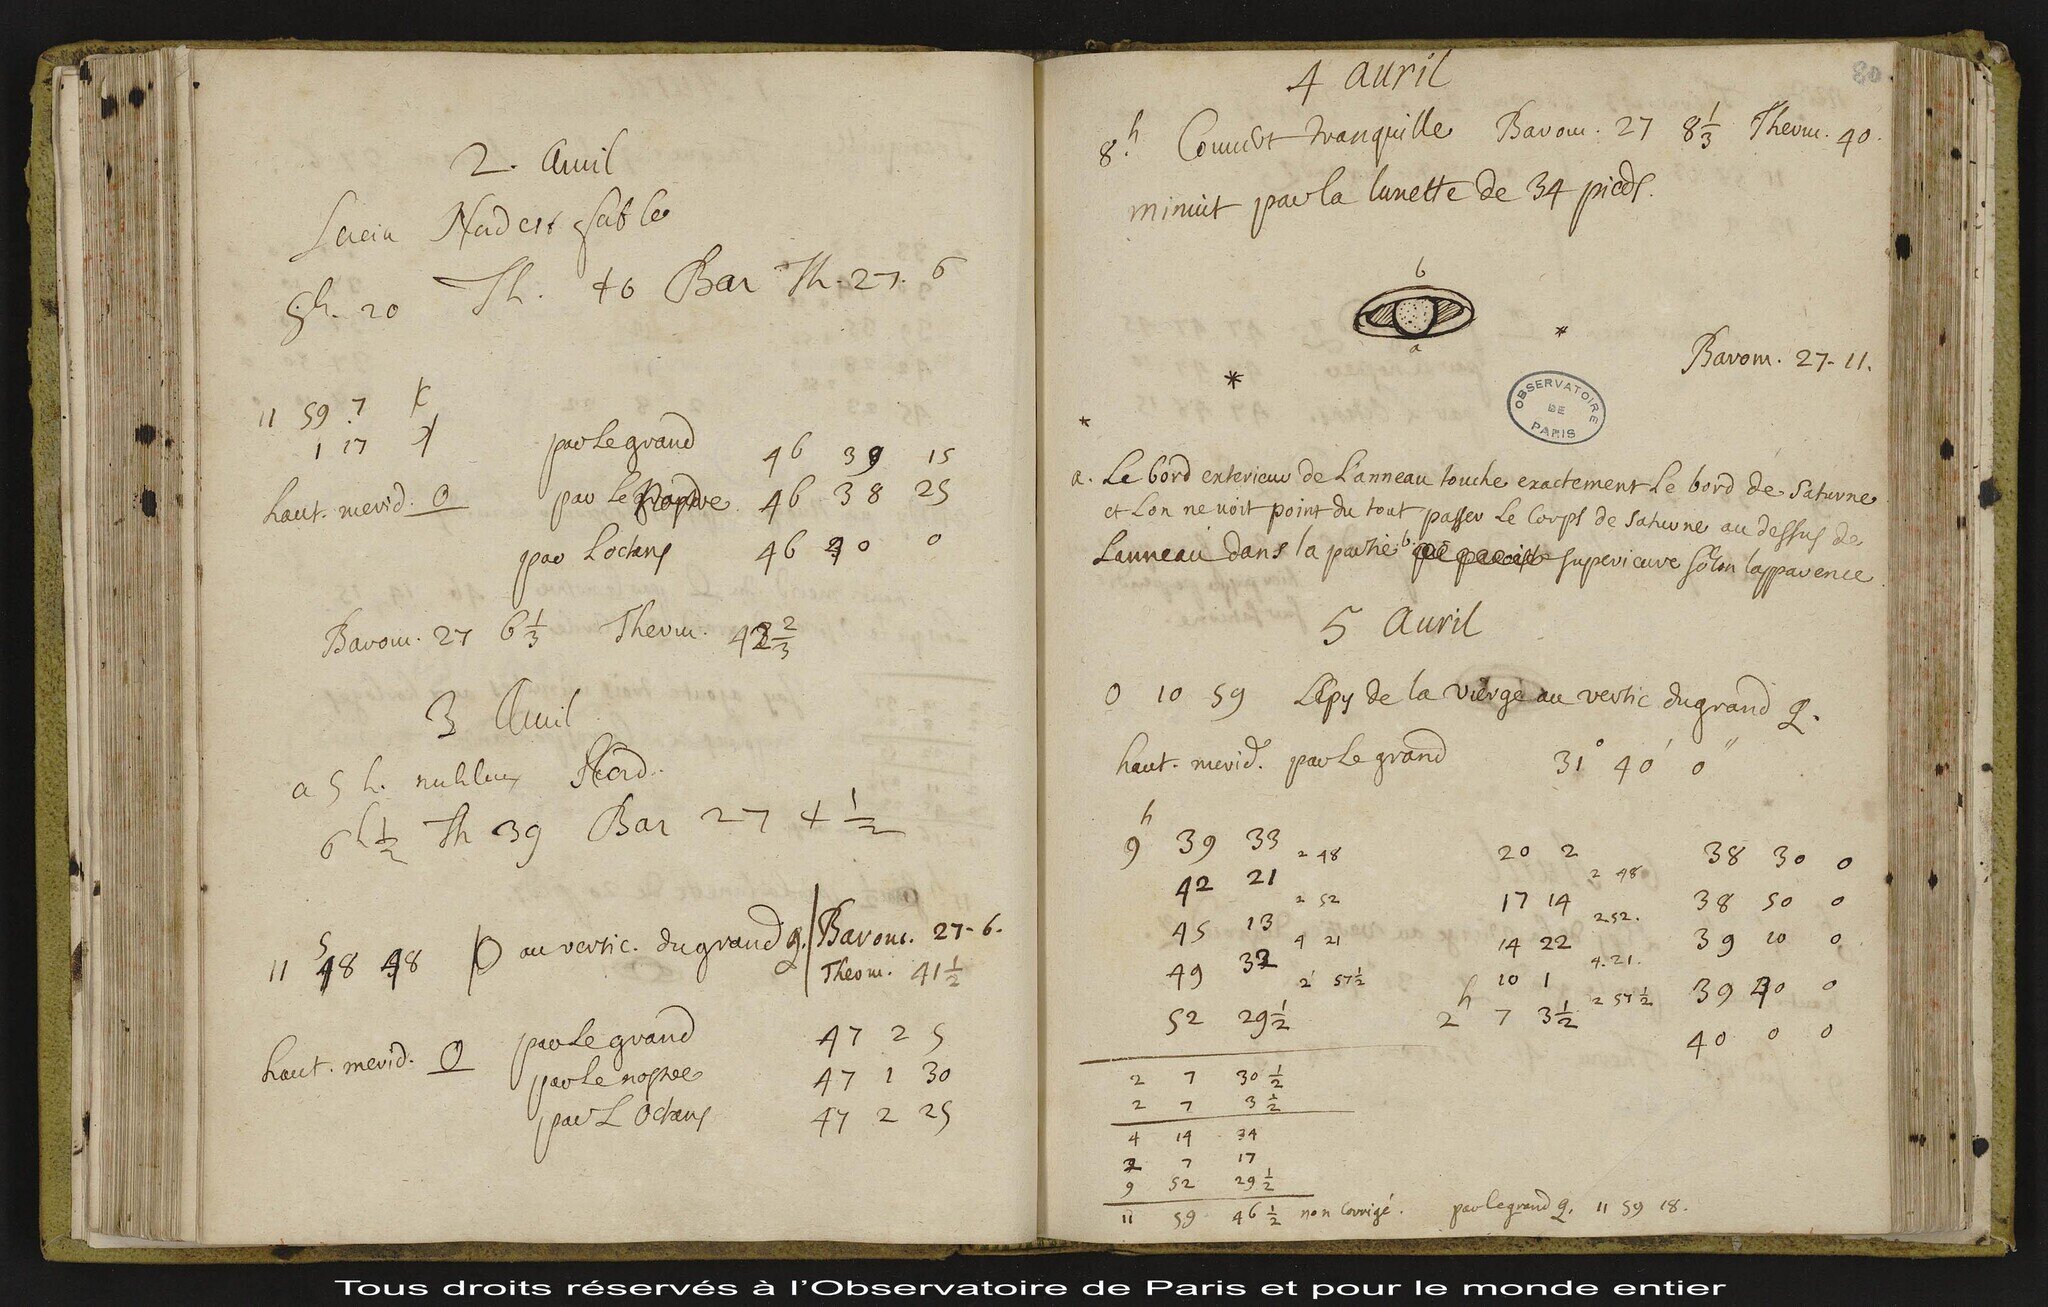 2. Avril
Nord est foible
5h. 20 Th. 46 Bar Th. 27. 6
11 59 7
1 17 par le grand 46 39 15
haut. merid. O par le nostre 46 38 25
par l'octans 46 0
Barom. 27 6 1/3 Therm. 42 2/3
3 Avril
a 5 h. nubileux Nord.
6h 1/2 Th 39 Bar 27 4 1/2
11 58 48 O au vertic. du grand q. Barom. 27-6.
Therm. 41 1/2
haut. merid. O par le grand 47 2 5
par le nostre 47 1 30
par L Octans 47 2 25
80
4 avril
8.h Couvert tranquille Barom. 27 8 1/3 Therm. 40.
minuit par la lunette de 34 pieds.
b
a
Barom. 27-11.
OBSERVATOIRE DE PARIS
a. Le bord exterieur de L'anneau touche exactement Le bord de Saturne
et Lon ne voit point du tout passer Le Corps de Saturne au dessus de
Lanneau dans la partie b superieure selon lapparence
5 Avril
0 10 59 L'épy de la vierge au vertic du grand q.
haut. merid. par Le grand 31° 40' 0"
9h 39 33 20 2 38 30 0
2 48 2 48
42 21 17 14 38 50 0
2 52 2 52.
45 13 14 22 39 10 0
4 21 4. 21.
49 32 10 1 39 40 0
2 57 1/2 2 57 1/2
52 29 1/2 2h 7 3 1/2 40 0 0
2 7 30 1/2
2 7 3 1/2
4 14 34
2 7 17
9 52 29 1/2
11 59 46 1/2 non Corrigé. par le grand q. 11 59 18.
Tous droits réservés à l'Observatoire de Paris et pour le monde entier